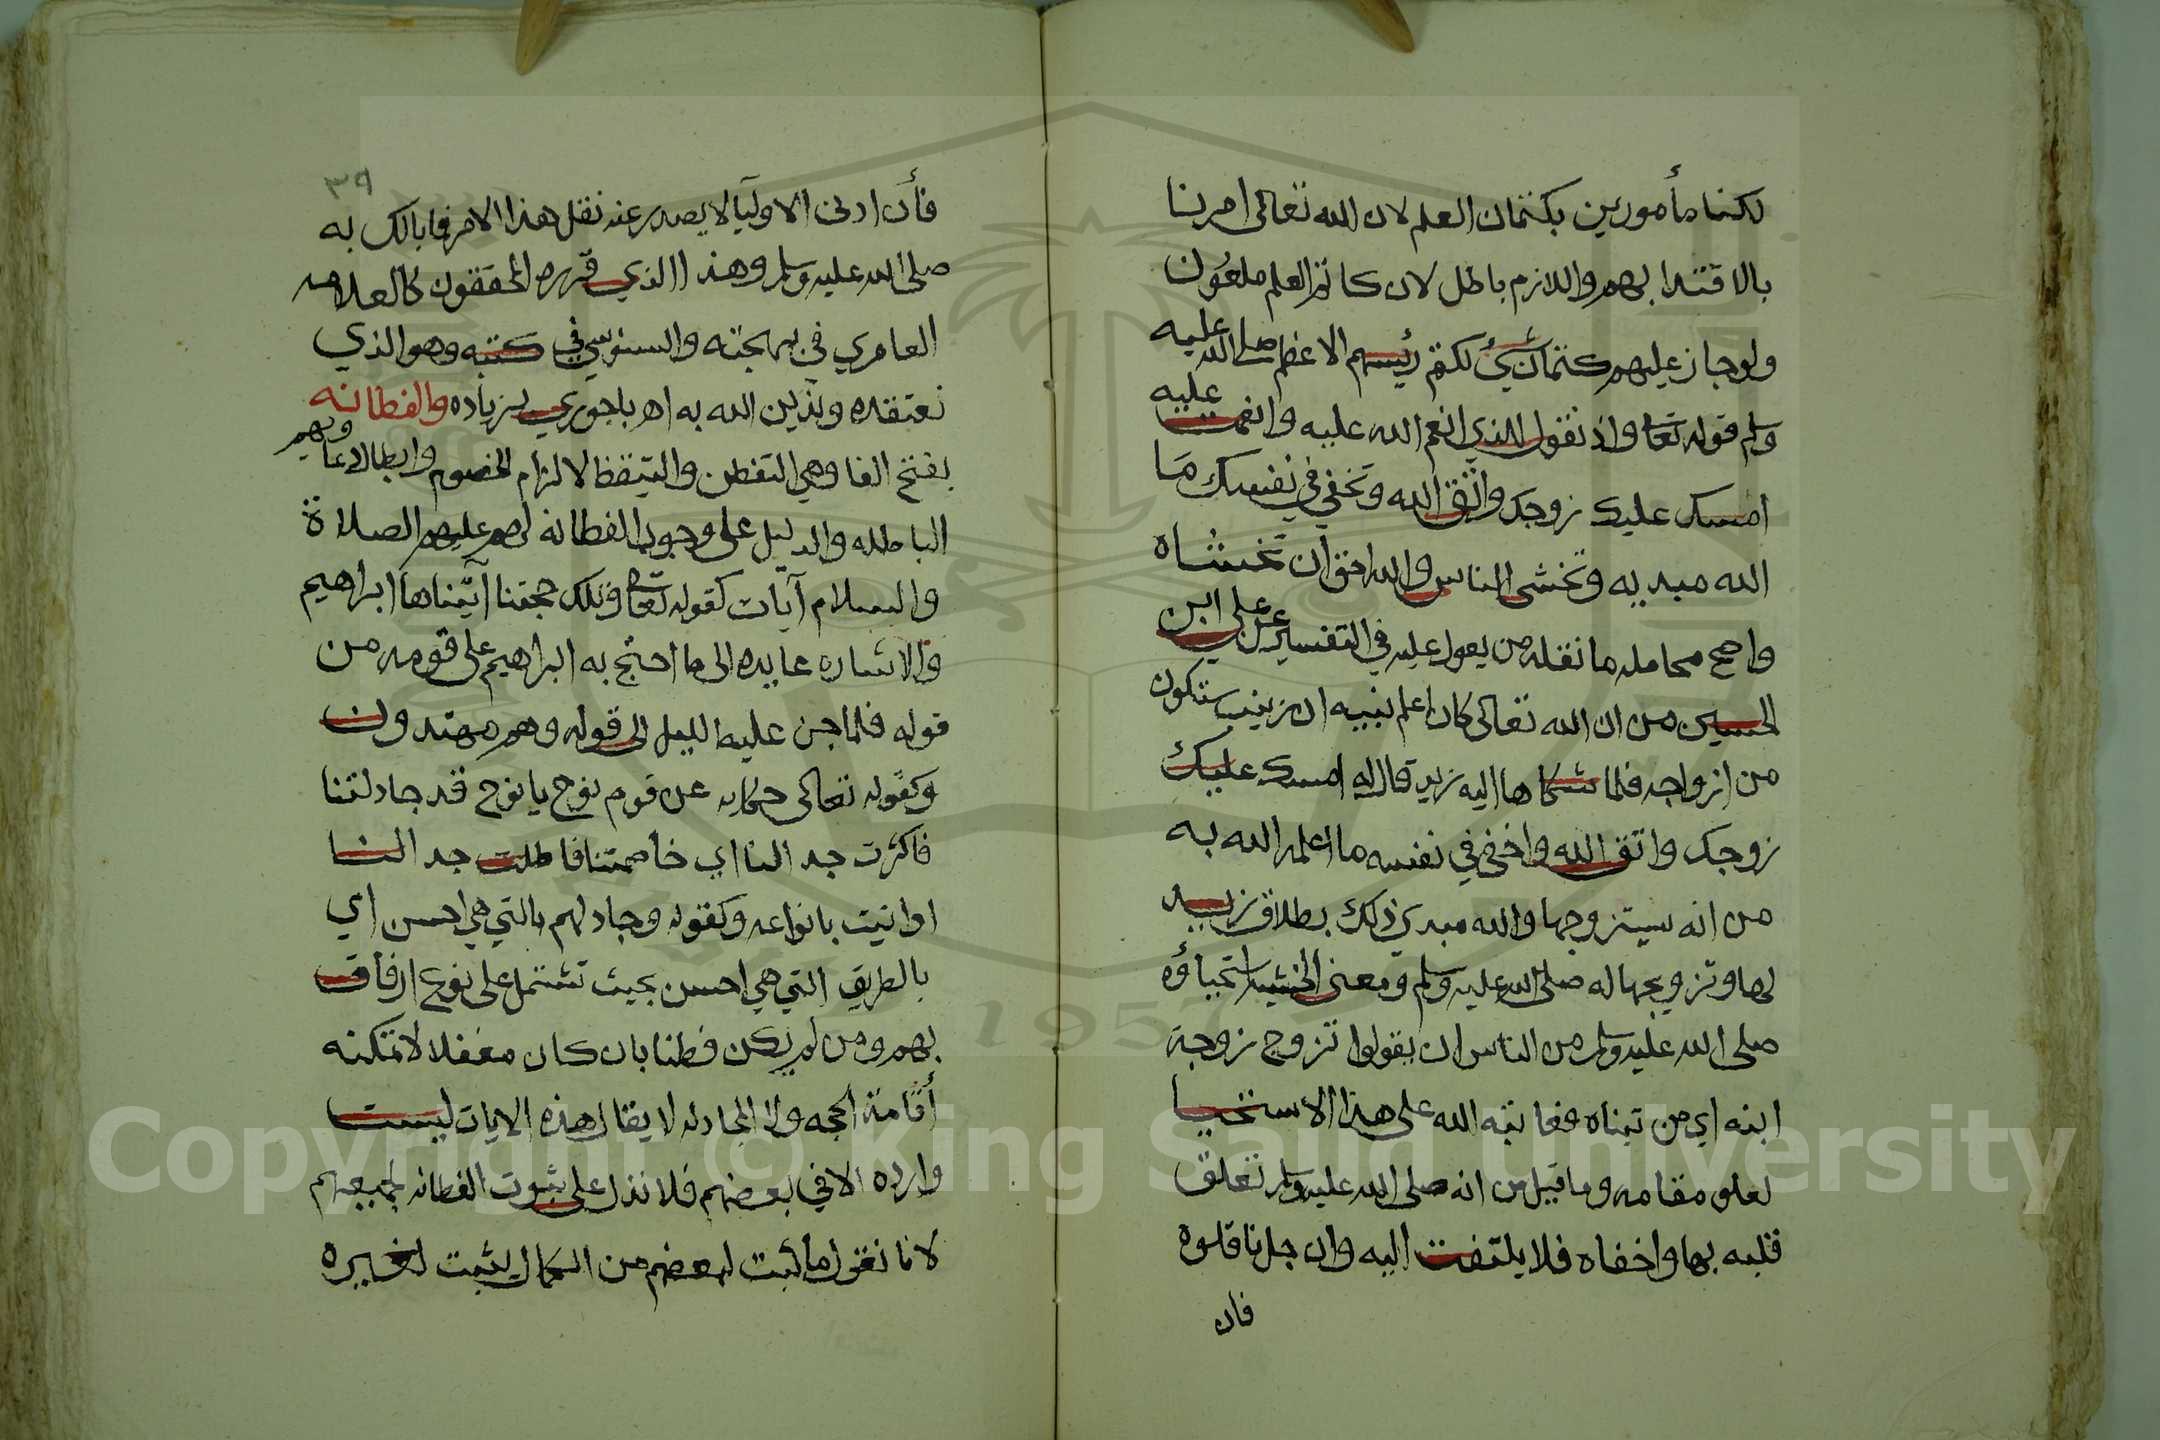 لكنا مأمورين بكتمان العلم لان الله تعالى امرنا
بالاقتدا بهم واللازم باطل لان كاتم العلم ملعون
ولو جاز عليهم كتمان شيء لكتم رئيسهم الاعظم صلى الله عليه
وسلم قوله تعالى واذ تقول للذي انعم الله عليه وانعمت عليه
امسك عليك زوجك واتق الله وتخفي في نفسك مَا
الله مبديه وتخشى الناس والله احق أن تخشاه
واصح محامله ما نقله من يعول عليه في التفسير عن علي ابن
الحسين من ان الله تعالى كان اعلم نبيه ان زينب ستكون
من ازواجه فلما شكاها اليه زيد قال له امسك عليك
زوجك واتق الله واخفى في نفسه ما اعلمه الله به
من انه سيتزوجها والله مبدي ذلك بطلاق زيد
لها وتزويجها له صلى الله عليه وسلم ومعنى الخشية استحياؤه
صلى الله عليه وسلم من الناس ان يقولوا تزوج زوجة
ابنه اي من تبناه فعاتبه الله على هذا الاستحيا
لعلو مقامه وما قيل من انه صلى الله عليه وسلم تعلق
قلبه بها واخفاه فلا يلتفت اليه وان جل ناقلوه
فان
٣٩
فأن ادنى الاوليآ لا يصدر عنه نقل هذا الامر فما بالك به
صلى الله عليه وسلم وهذا الذي قرره المحققون كالعلامه
العامري في بهجته والسنوسي في كتبه وهو الذي
نعتقده وندين الله به اهـ باجوري بزياده والفطانه
بفتح الفا وهي التفطن والتيقظ لالزام الخصوم وابطال دعاويهم
الباطله والدليل على وجوب الفطانه لهم عليهم الصلاة
والسلام آيات كقوله تعالى وتلك حجتنا آتيناها ابراهيم
والاشاره عايده الى ما احتج به ابراهيم على قومه من
قوله فلما جن عليه الليل الى قوله وهم مهتدون
وكقوله تعالى حكايه عن قوم نوح يا نوح قد جادلتنا
فاكثرت جدالنا اي خاصمتنا فاطلت جدالنا
او اتيت بانواعه وكقوله وجادلهم بالتي هي احسن اي
بالطريق التي هي احسن بحيث تشتمل على نوع ارفاق
بهم ومن لم يكن فطنا بان كان مغفلا لا تمكنه
أقامة الحجه ولا المجادله لا يقال هذه الايات ليست
وارده الا في بعضهم فلا تدل على ثبوت الفطانه لجميعهم
لانا نقول ما ثبت لبعضهم من الكمال يثبت لغيره
Copyright © King Saud University
1957